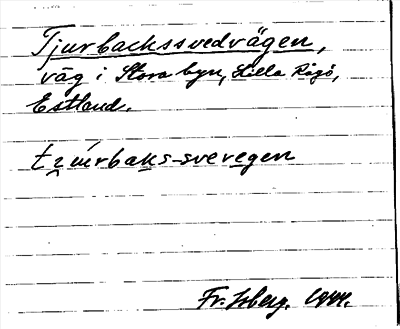 Tjurbackssvedvägen,
väg i Stora byn, Lilla Rågö,
Estland.
Fr. Isberg. 1944.